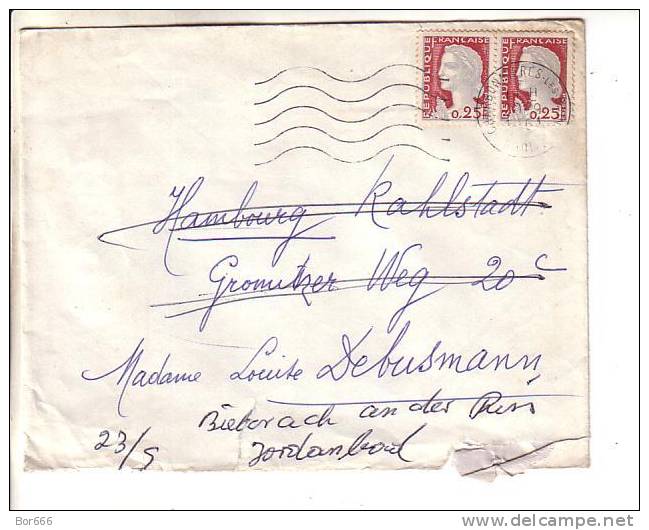 REPUBLIQUE FRANCAISE 0,25
REPUBLIQUE FRANCAISE 0,25
Hambourg Rahlstadt
Gromitzer Weg 20 c
Madame Louise Debusmann
Bieberach an der Riss
23/9 Jordanbad
Bor666
delcampe.net